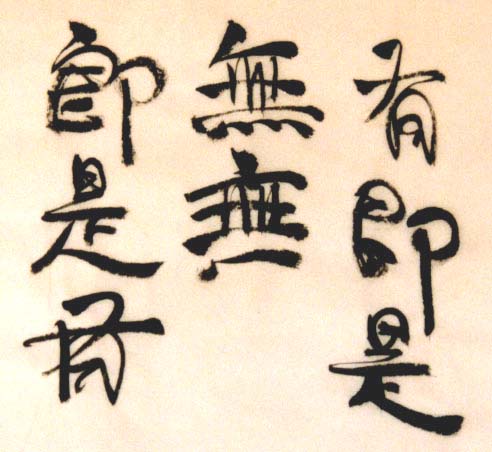 有即是
無無
即是有